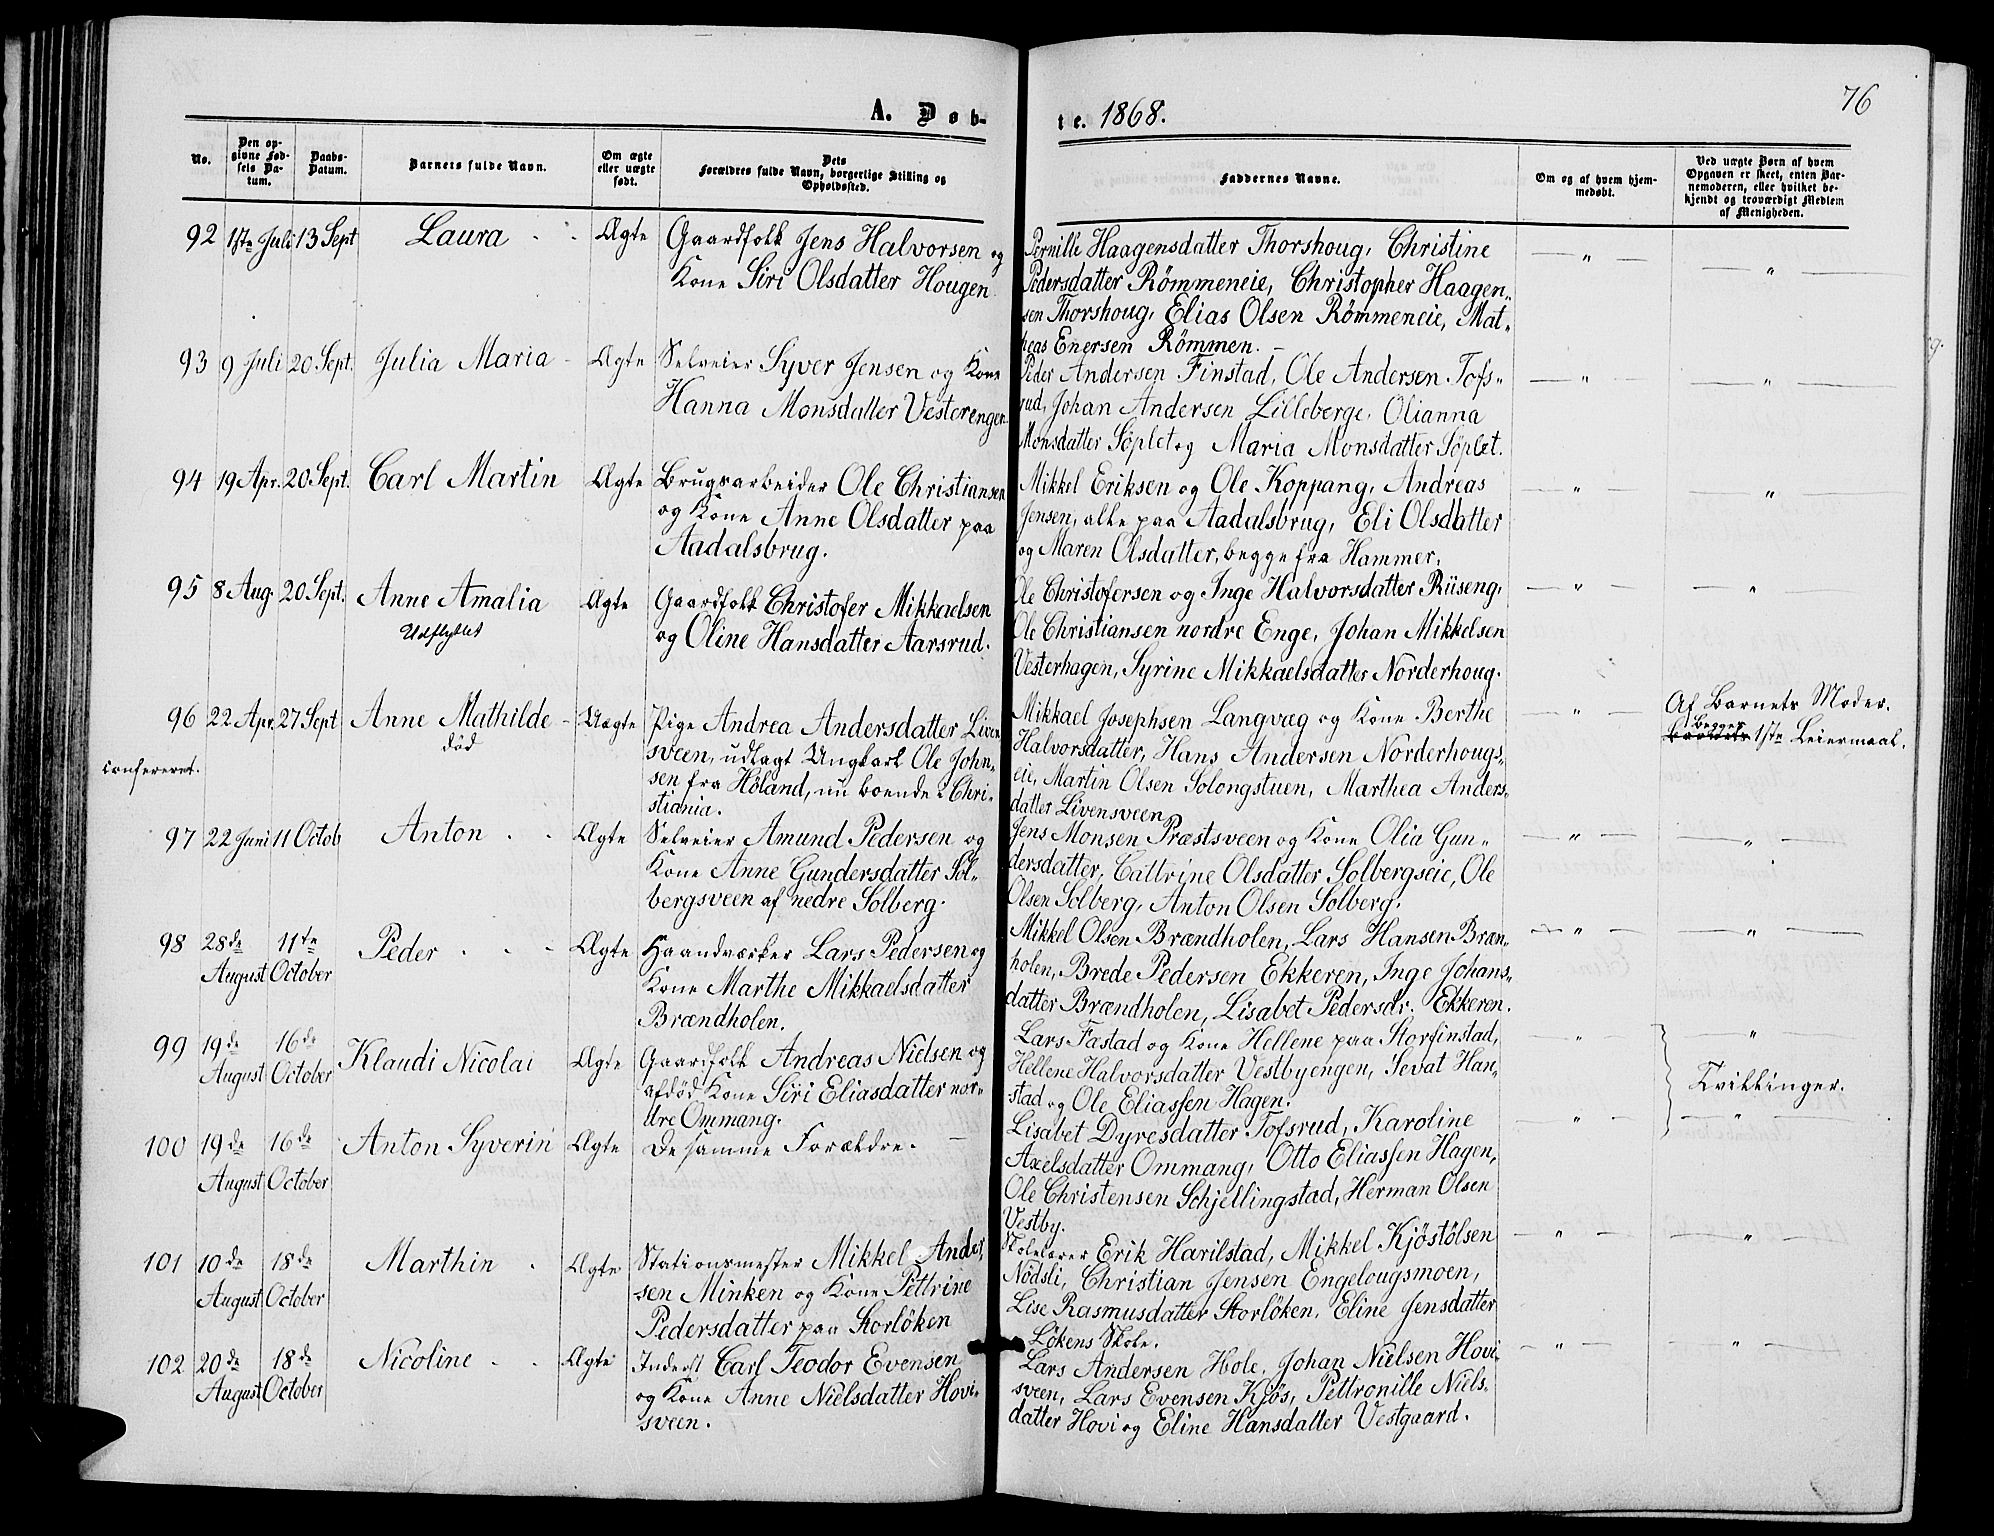 76
A. Døb-
te. 1868.
No.
Den op-
givne Fød-
sels Da-
tum.
Daabs-
Datum.
Barnets fulde Navn.
Om ægte
eller uægte
født.
Dets
Forældres fulde Navn, borgerlige Stilling og
Opholdssted.
Faddernes Navne.
Om og af hvem hjem-
medøbt.
Ved uægte Børn af hvem
Opgaven er skeet, enten Bar-
nemoderen, eller hvilket be-
kjendt og troværdigt Medlem
af Menigheden.
92 1ste Juli 13 Sept Laura - - Ægte
Gaardfolk Jens Halvorsen og
Kone Siri Olsdatter Hougen
Pernille Haagensdatter Thorshoug, Christine
Pedersdatter Römmeneie, Christopher Haagen„
sen Thorshoug, Elias Olsen Römmeneie, Mat„
heas Enersen Römmen. —
— „ — — „ —
93 9 Juli 20 Sept. Julia Maria - Ægte
Selveier Syver Jensen og Kone
Hanna Monsdatter Vesterengen
Peder Andersen Finstad, Ole Andersen Tofs„
rud, Johan Andersen Lilleberge, Olianna
Monsdatter Söplet og Maria Monsdatter Söplet.
— „ — — „ —
94 19 Apr. 20 Sept. Carl Martin Ægte
Brugsarbeider Ole Christiansen
og Kone Anne Olsdatter paa
Aadalsbrug.
Mikkel Eriksen og Ole Koppang, Andreas
Jensen, alle paa Aadalsbrug, Eli Olsdatter
og Maren Olsdatter, begge fra Hammer.
— „ — — „ —
95 8 Aug. 20 Sept. Anne Amalia Ægte
Udflyttet
Gaardfolk Christofer Mikkaelsen
og Oline Hansdatter Aarsrud.
Ole Christofersen og Inge Halvorsdatter Rüseng,
Ole Christiansen nordre Enge, Johan Mikkelsen
Vesterhagen, Syrine Mikkaelsdatter Norderhoug.
— „ — — „ —
96 22 Apr. 27 Sept Anne Mathilde - Uægte
død
Confereret.
Pige Andrea Andersdatter Liven
sveen, udlagt Ungkarl Ole John„
sen fra Höland, nu boende i Chri„
stiania.
Mikkael Josephsen Langvæg og Kone Berthe
Halvorsdatter, Hans Andersen Norderhougs„
eie, Martin Olsen Solongstuen, Marthea Anders„
datter Livensveen
— „ —
Af Barnets Moder.
Begges
1ste Leiermaal.
97 22 Juni 11 Octob Anton - - Ægte
Selveier Amund Pedersen og
Kone Anne Gundersdatter Sol„
bergsveen af nedre Solberg.
Jens Monsen Præstsveen og Kone Olia Gun„
dersdatter, Cattrine Olsdatter Solbergseie, Ole
Olsen Solberg, Anton Olsen Solberg.
— „ — „
98 28de August 11te October Peder - - - Ægte
Haandværker Lars Pedersen og
Kone Marthe Mikkaelsdatter
Brændholen.
Mikkel Olsen Brændholen, Lars Hansen Bræn„
holen, Brede Pedersen Ekkeren, Inge Johans„
datter Brændholen, Lisabet Pedersdr. Ekkeren.
— „ — — „ —
99 19de August 16de October Klaudi Nicolai Ægte
Gaardfolk Andreas Nielsen og
afdöd Kone Siri Eliasdatter nor„
dre Ommang.
Lars Fæstad og Kone Hellene paa Storfinstad,
Hellene Halvorsdatter Vestbyengen, Sevat Han„
stad og Ole Eliassen Hagen.
— „ — „ —
Tvillinger.
100 19de August 16de October Anton Syverin Ægte
De samme Forældre. —
Lisabet Dyresdatter Tofsrud, Karoline
Axelsdatter Ommang, Otto Eliassen Hagen,
Ole Christensen Schjellingstad, Herman Olsen
Vestby.
— „ — — „ —
101 10de August 18de October Marthin - Ægte
Stationsmester Mikkel Ander„
sen Minken og Kone Pettrine
Pedersdatter paa Storlöken
Skolelærer Erik Harilstad, Mikkel Kjöstölsen
Nödsli, Christian Jensen Engelougsmoen,
Lise Rasmusdatter Storlöken, Eline Jensdatter
Lökens Skole.
— „ — — „ —
102 20de August 18de October Nicoline - - Ægte
Inderst Carl Teodor Evensen
og Kone Anne Nielsdatter Hovi„
sveen.
Lars Andersen Hole, Johan Nielsen Hovi„
sveen, Lars Evensen Kjös, Pettronille Niels„
datter Hovi og Eline Hansdatter Vestgaard.
— „ — „ —